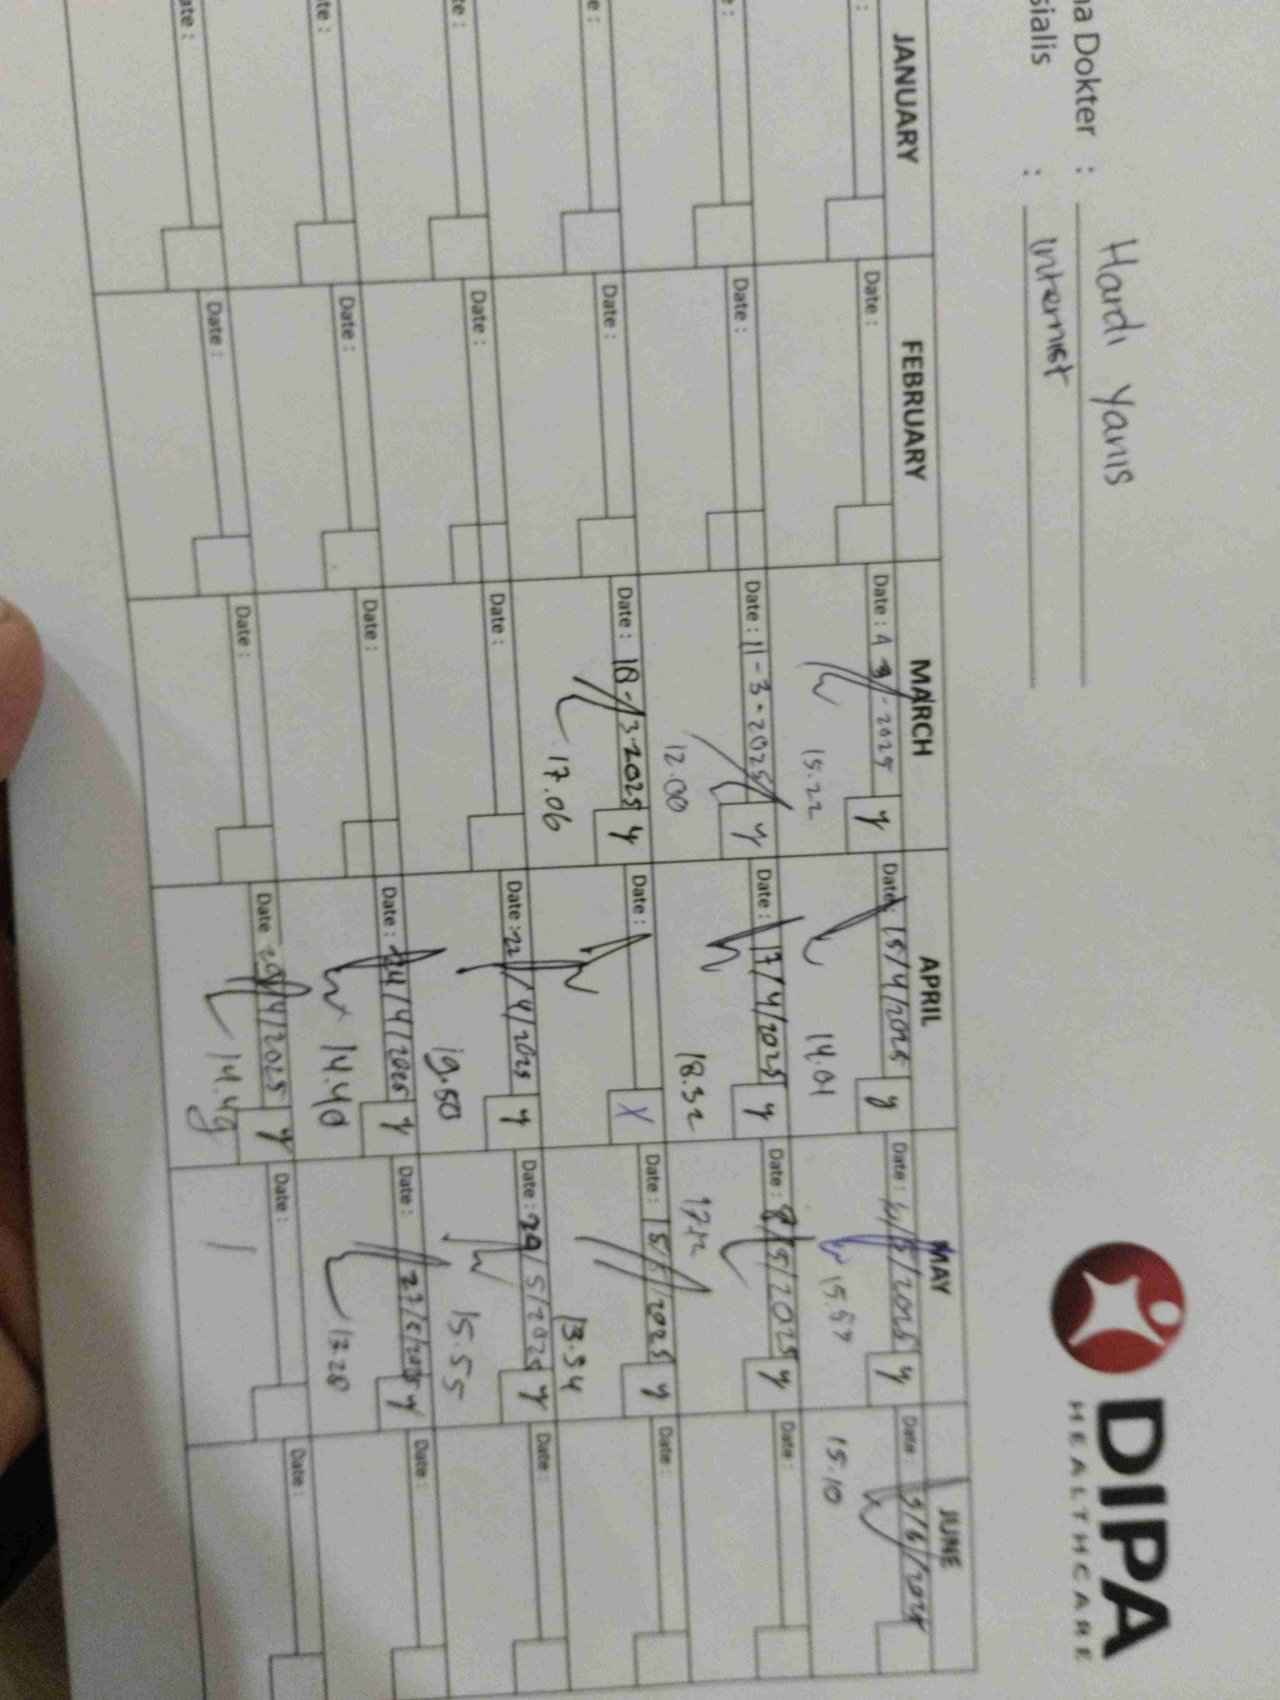 DIPA
HEALTHCARE
na Dokter : Hardi Yanis
sialis : Internist
JANUARY FEBRUARY MARCH APRIL MAY JUNE
: Date : Date : 2025 y Date : 15/4/2025 y Date : /5/2025 y Date : 3/6/2025
15.22 14.01 15.57 15.10
e : Date : Date : 11-3-2025 y Date : 17/4/2025 y Date : 8/5/2025 y Date :
12.00 18.32
e : Date : Date : 18-3-2025 y Date : X Date : 15/5/2025 y Date :
17.06 13.54
te : Date : Date : Date : 22/4/2025 y Date : 20/5/2025 y Date :
19.50 15.55
te : Date : Date : Date : 24/4/2025 y Date : 27/5/2025 y Date :
14.40 13.28
ate : Date : Date : Date 29/4/2025 y Date : Date :
14.49